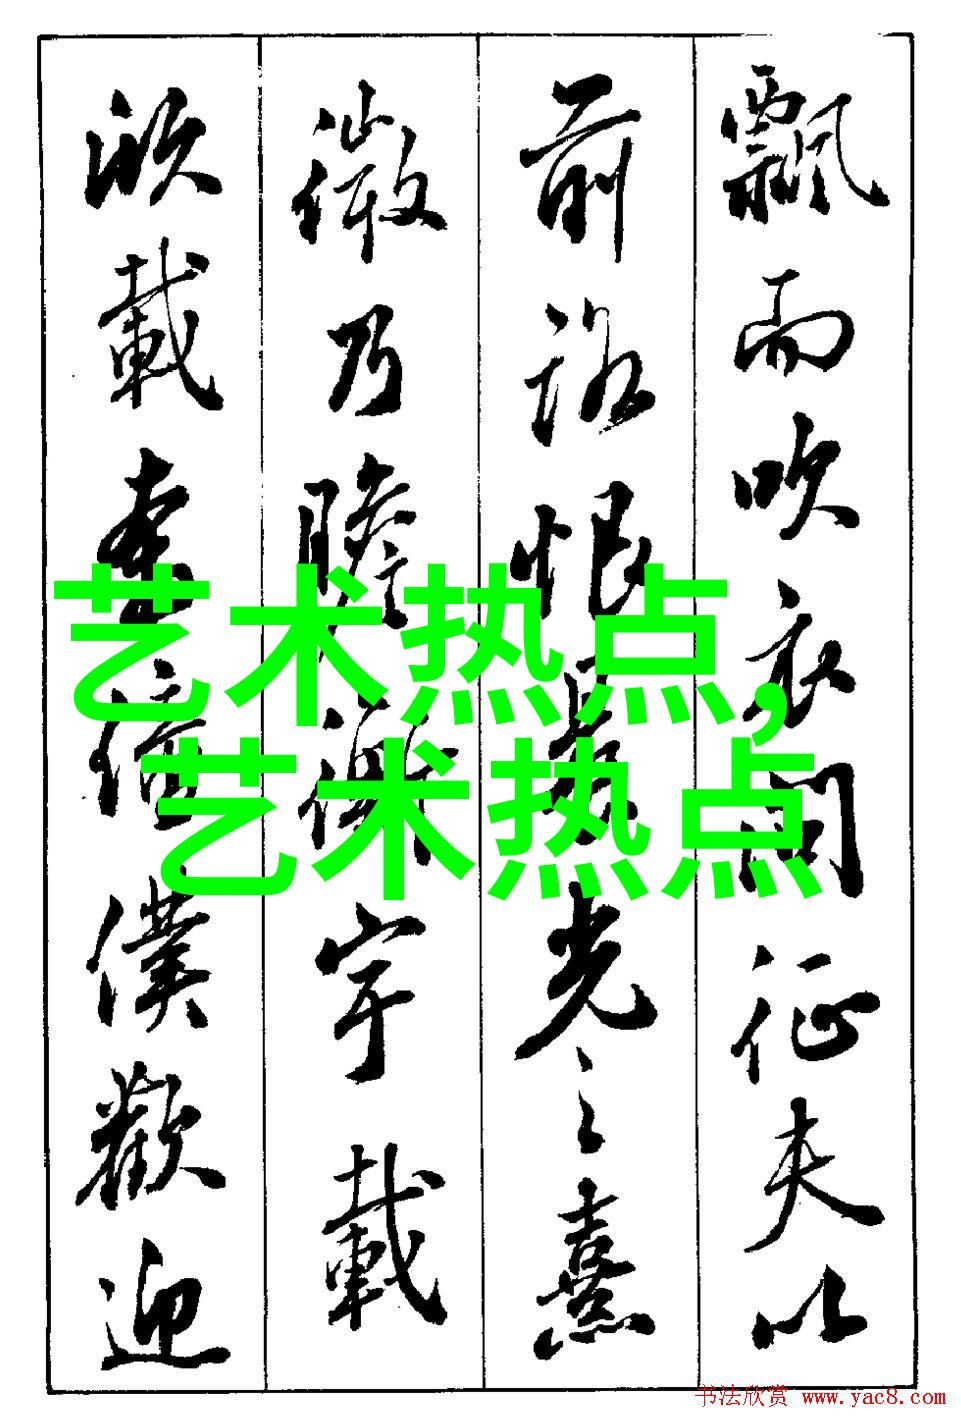 飄而吹衣問征夫以
前路恨晨光之熹
微乃瞻衡宇載
欣載奔僮僕歡迎
艺术热点,
艺术热点
书法欣赏 www.yac8.com